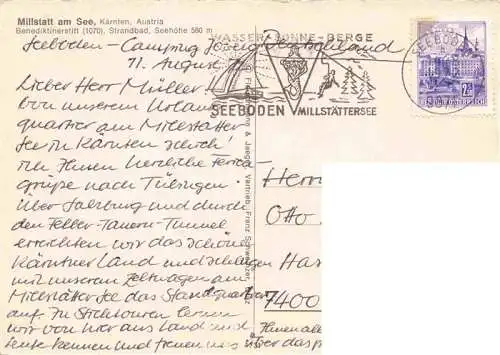 Millstatt am See, Kärnten, Austria
Benediktinerstift (1070), Strandbad, Seehöhe 580 m
WASSER-SONNE-BERGE
SEEBODEN MILLSTÄTTERSEE
SEEBODEN
Seeboden - Camping
11. August
Lieber Herr Müller!
Von unserem Urlaubs
quartier am Millstätter
See in Kärnten schick'
ich Ihnen herzliche Ferien
grüße nach Tübingen.
Über Salzburg und durch
den Tauern-Tunnel
erreichten wir das schöne
Kärntner Land und schlugen
mit unserem Zeltwagen am
Millstätter See das Standquartier
auf. In Stichtouren lernen
wir von hier aus Land und
Leute kennen und freuen uns
Jaeger, Vertrieb: Franz Schweinzer, Graz
Herrn
Otto
7400
über das